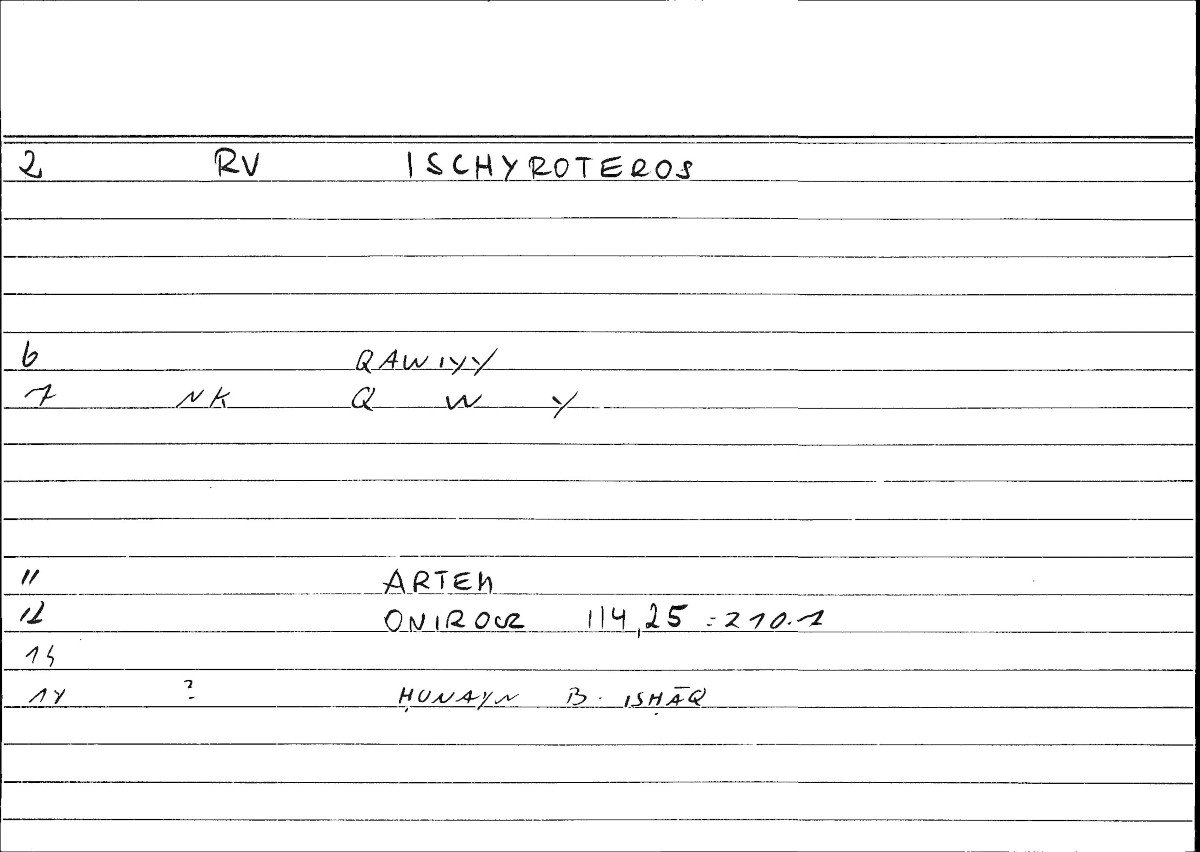 2 RV ISCHYROTEROS
6 QAWIYY
7 NK Q W Y
11 ARTEM
12 ONIROCR 114,25 = 210.1
15
18 ? ḤUNAYN B. ISḤĀQ